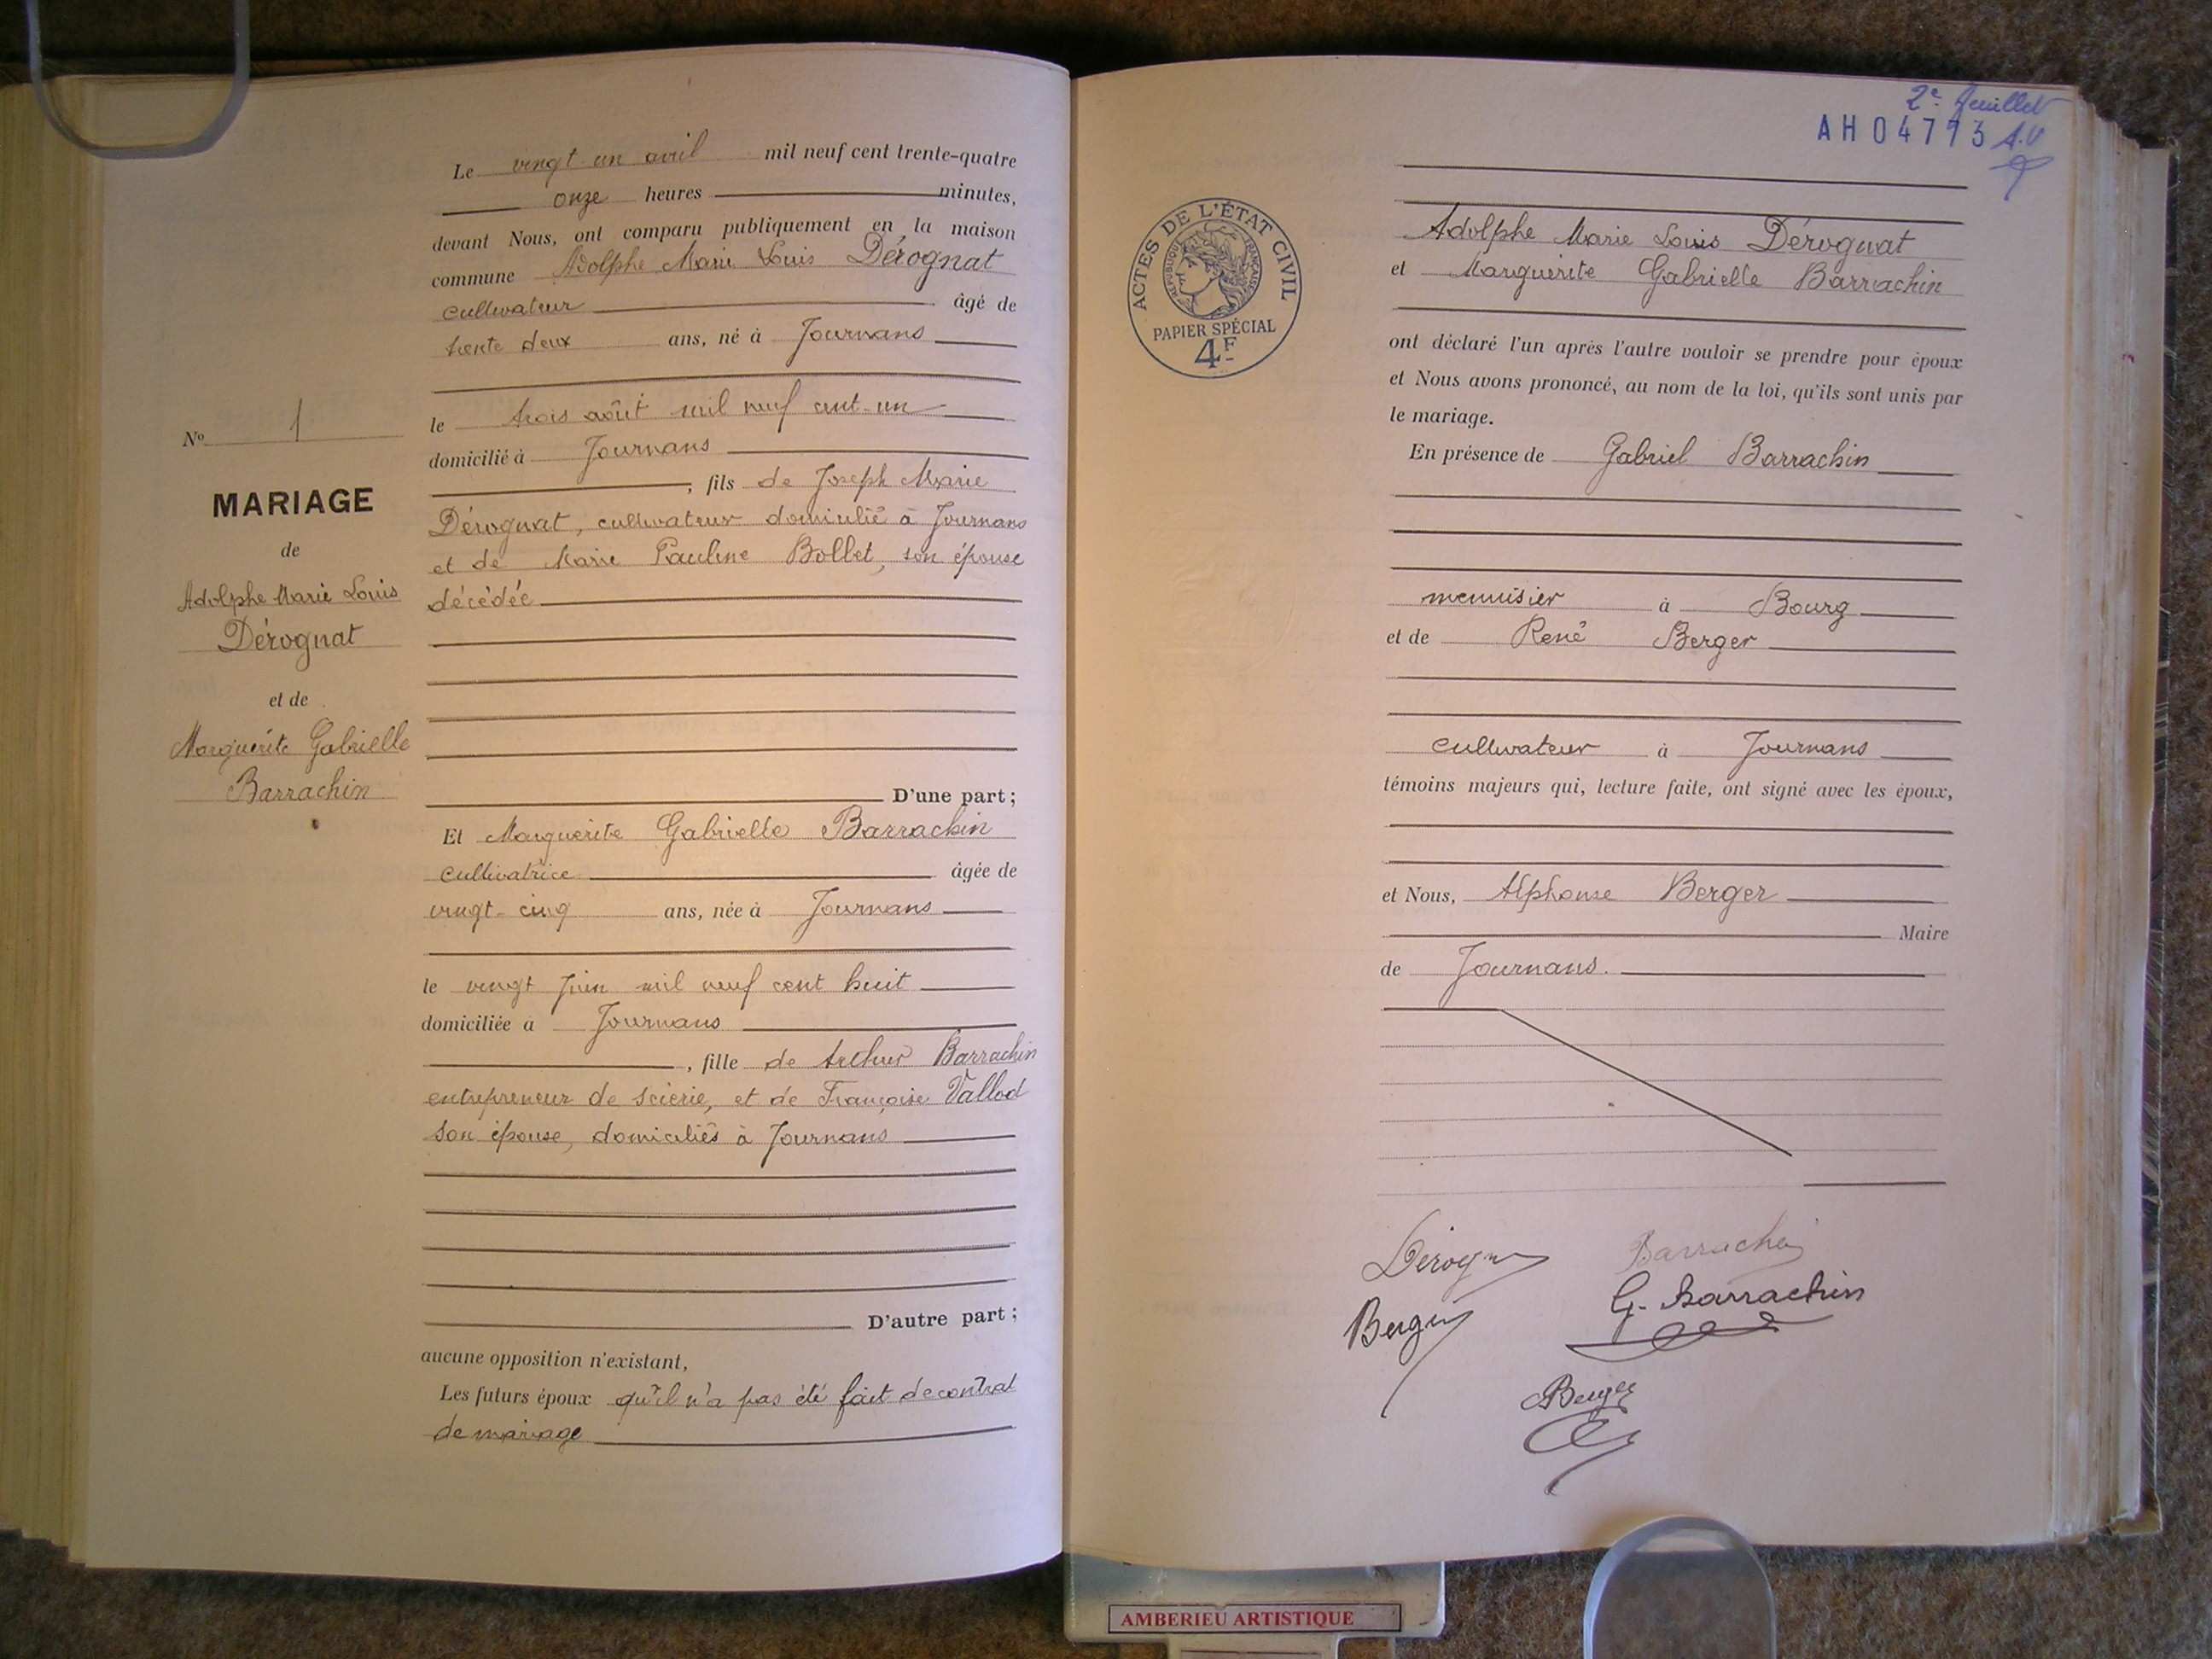 Le vingt un avril mil neuf cent trente-quatre
onze heures minutes,
devant Nous, ont comparu publiquement en la maison
commune Adolphe Marie Louis Dérognat
cultivateur âgé de
trente deux ans, né à Journans
le trois août mil neuf cent un
domicilié à Journans
, fils de Joseph Marie
Dérognat, cultivateur domicilié à Journans
et de Marie Pauline Bollet, son épouse
décédée
No 1
MARIAGE
de
Adolphe Marie Louis
Dérognat
et de
Marguerite Gabrielle
Barrachin
D'une part;
Et Marguerite Gabrielle Barrachin
cultivatrice âgée de
vingt-cinq ans, née à Journans
le vingt juin mil neuf cent huit
domiciliée à Journans
, fille de Arthur Barrachin
entrepreneur de scierie, et de Françoise Vallod
son épouse, domiciliés à Journans
D'autre part;
aucune opposition n'existant,
Les futurs époux qu'il n'a pas été fait de contrat
de mariage
2e feuillet
AH04773 A.V
ACTES DE L'ÉTAT CIVIL
RÉPUBLIQUE FRANÇAISE
PAPIER SPÉCIAL
4F
Adolphe Marie Louis Dérognat
et Marguerite Gabrielle Barrachin
ont déclaré l'un après l'autre vouloir se prendre pour époux
et Nous avons prononcé, au nom de la loi, qu'ils sont unis par
le mariage.
En présence de Gabriel Barrachin
menuisier à Bourg
et de René Berger
cultivateur à Journans
témoins majeurs qui, lecture faite, ont signé avec les époux,
et Nous, Alphonse Berger
Maire
de Journans.
Barrachin
G. Barrachin
Berger
Berger
AMBERIEU ARTISTIQUE